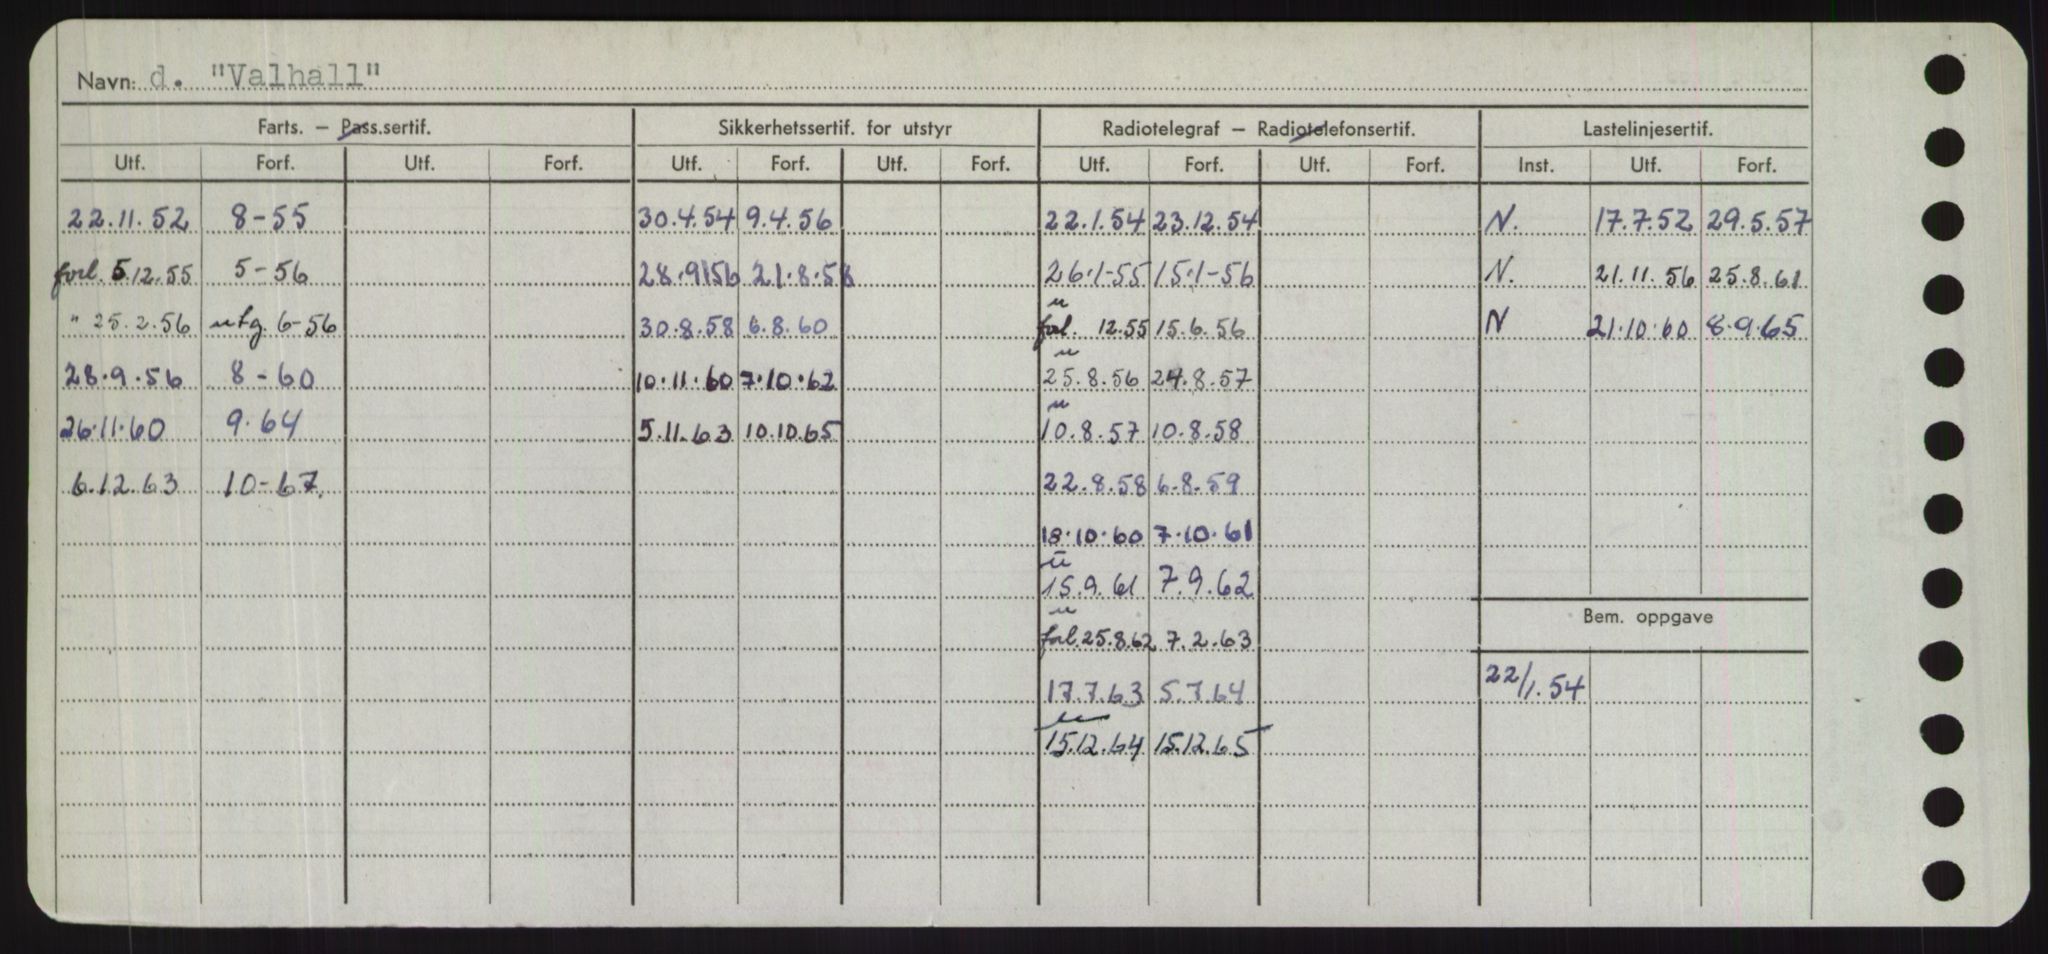 Navn: d. "Valhall"
Farts. – Pass.sertif. Sikkerhetssertif. for utstyr Radiotelegraf – Radiotelefonsertif. Lastelinjesertif.
Utf. Forf. Utf. Forf. Utf. Forf. Utf. Forf. Utf. Forf. Utf. Forf. Inst. Utf. Forf.
22.11.52 8-55 30.4.54 9.4.56 22.1.54 23.12.54 N. 17.7.52 29.5.57
forl. 5.12.55 5-56 28.9156 21.8.58 26.1-55 15.1-56 N. 21.11.56 25.8.61
" 25.2.56 utg. 6-56 30.8.58 6.8.60 u forl. 12.55 15.6.56 N 21.10.60 8.9.65
28.9.56 8-60 10.11.60 7.10.62 u 25.8.56 24.8.57
26.11.60 9.64 5.11.63 10.10.65 u 10.8.57 10.8.58
6.12.63 10-67. 22.8.58 6.8.59
18.10.60 7.10.61
u 15.9.61 7.9.62
Bem. oppgave
u forl. 25.8.62 7.2.63
17.7.63 5.7.64 22/1.54
u 15.12.64 15.12.65